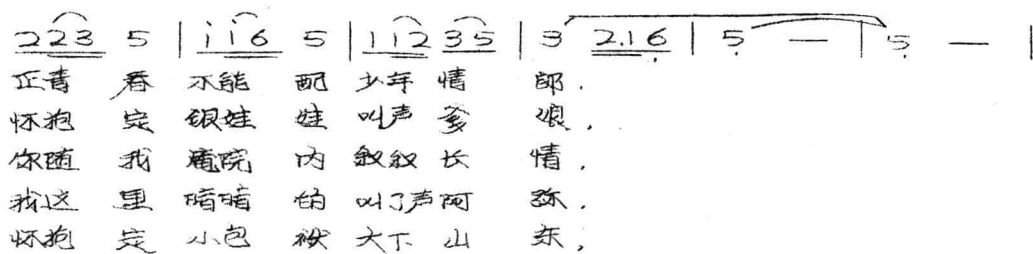 2 2 3 5 | i i 6 5 | 1 1 2 3 5 | 3 2.1 6 | 5 — | 5 — |
正青春不能配少年情郎.
怀抱定银娃娃叫声爹娘,
你随我庵院内叙叙长情,
我这里暗暗的叫了声阿弥.
怀抱定小包袱大下山东,